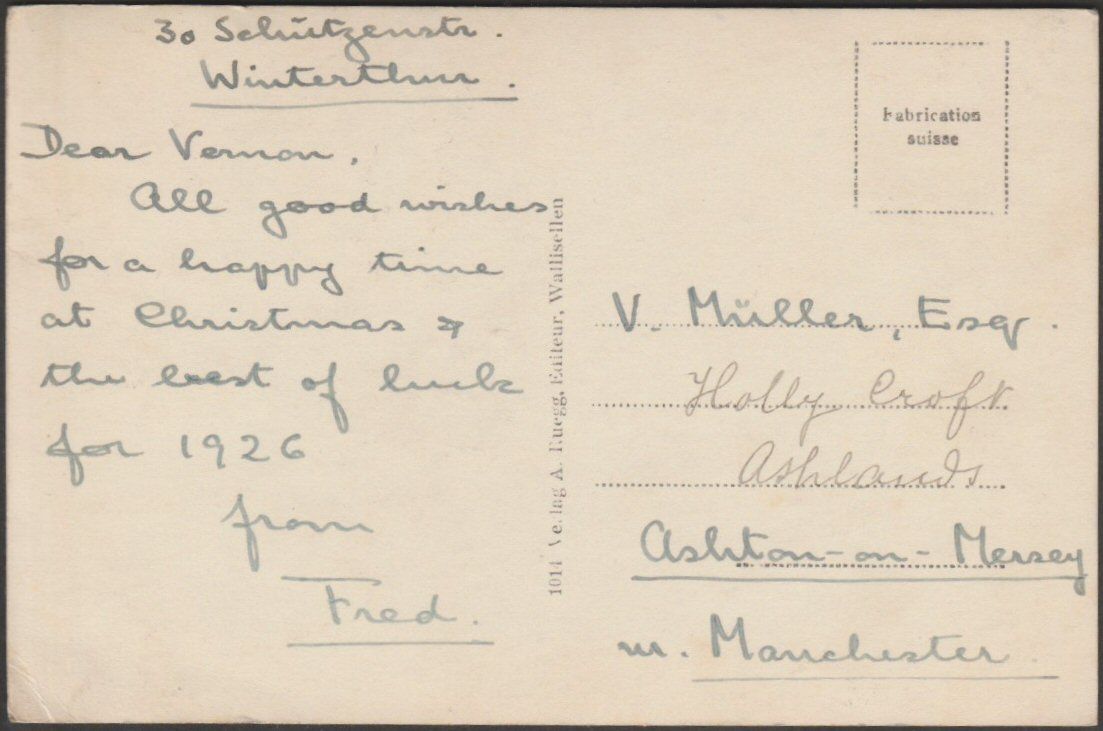 30 Schützenstr.
Winterthur.
Dear Vernon,
All good wishes
for a happy time
at Christmas &
the best of luck
for 1926
from
Fred.
1014 Verlag A. Ruegg, Editeur, Wallisellen
Fabrication
suisse
V. Müller, Esq.
Holly Croft
Ashlands
Ashton-on-Mersey
nr. Manchester.